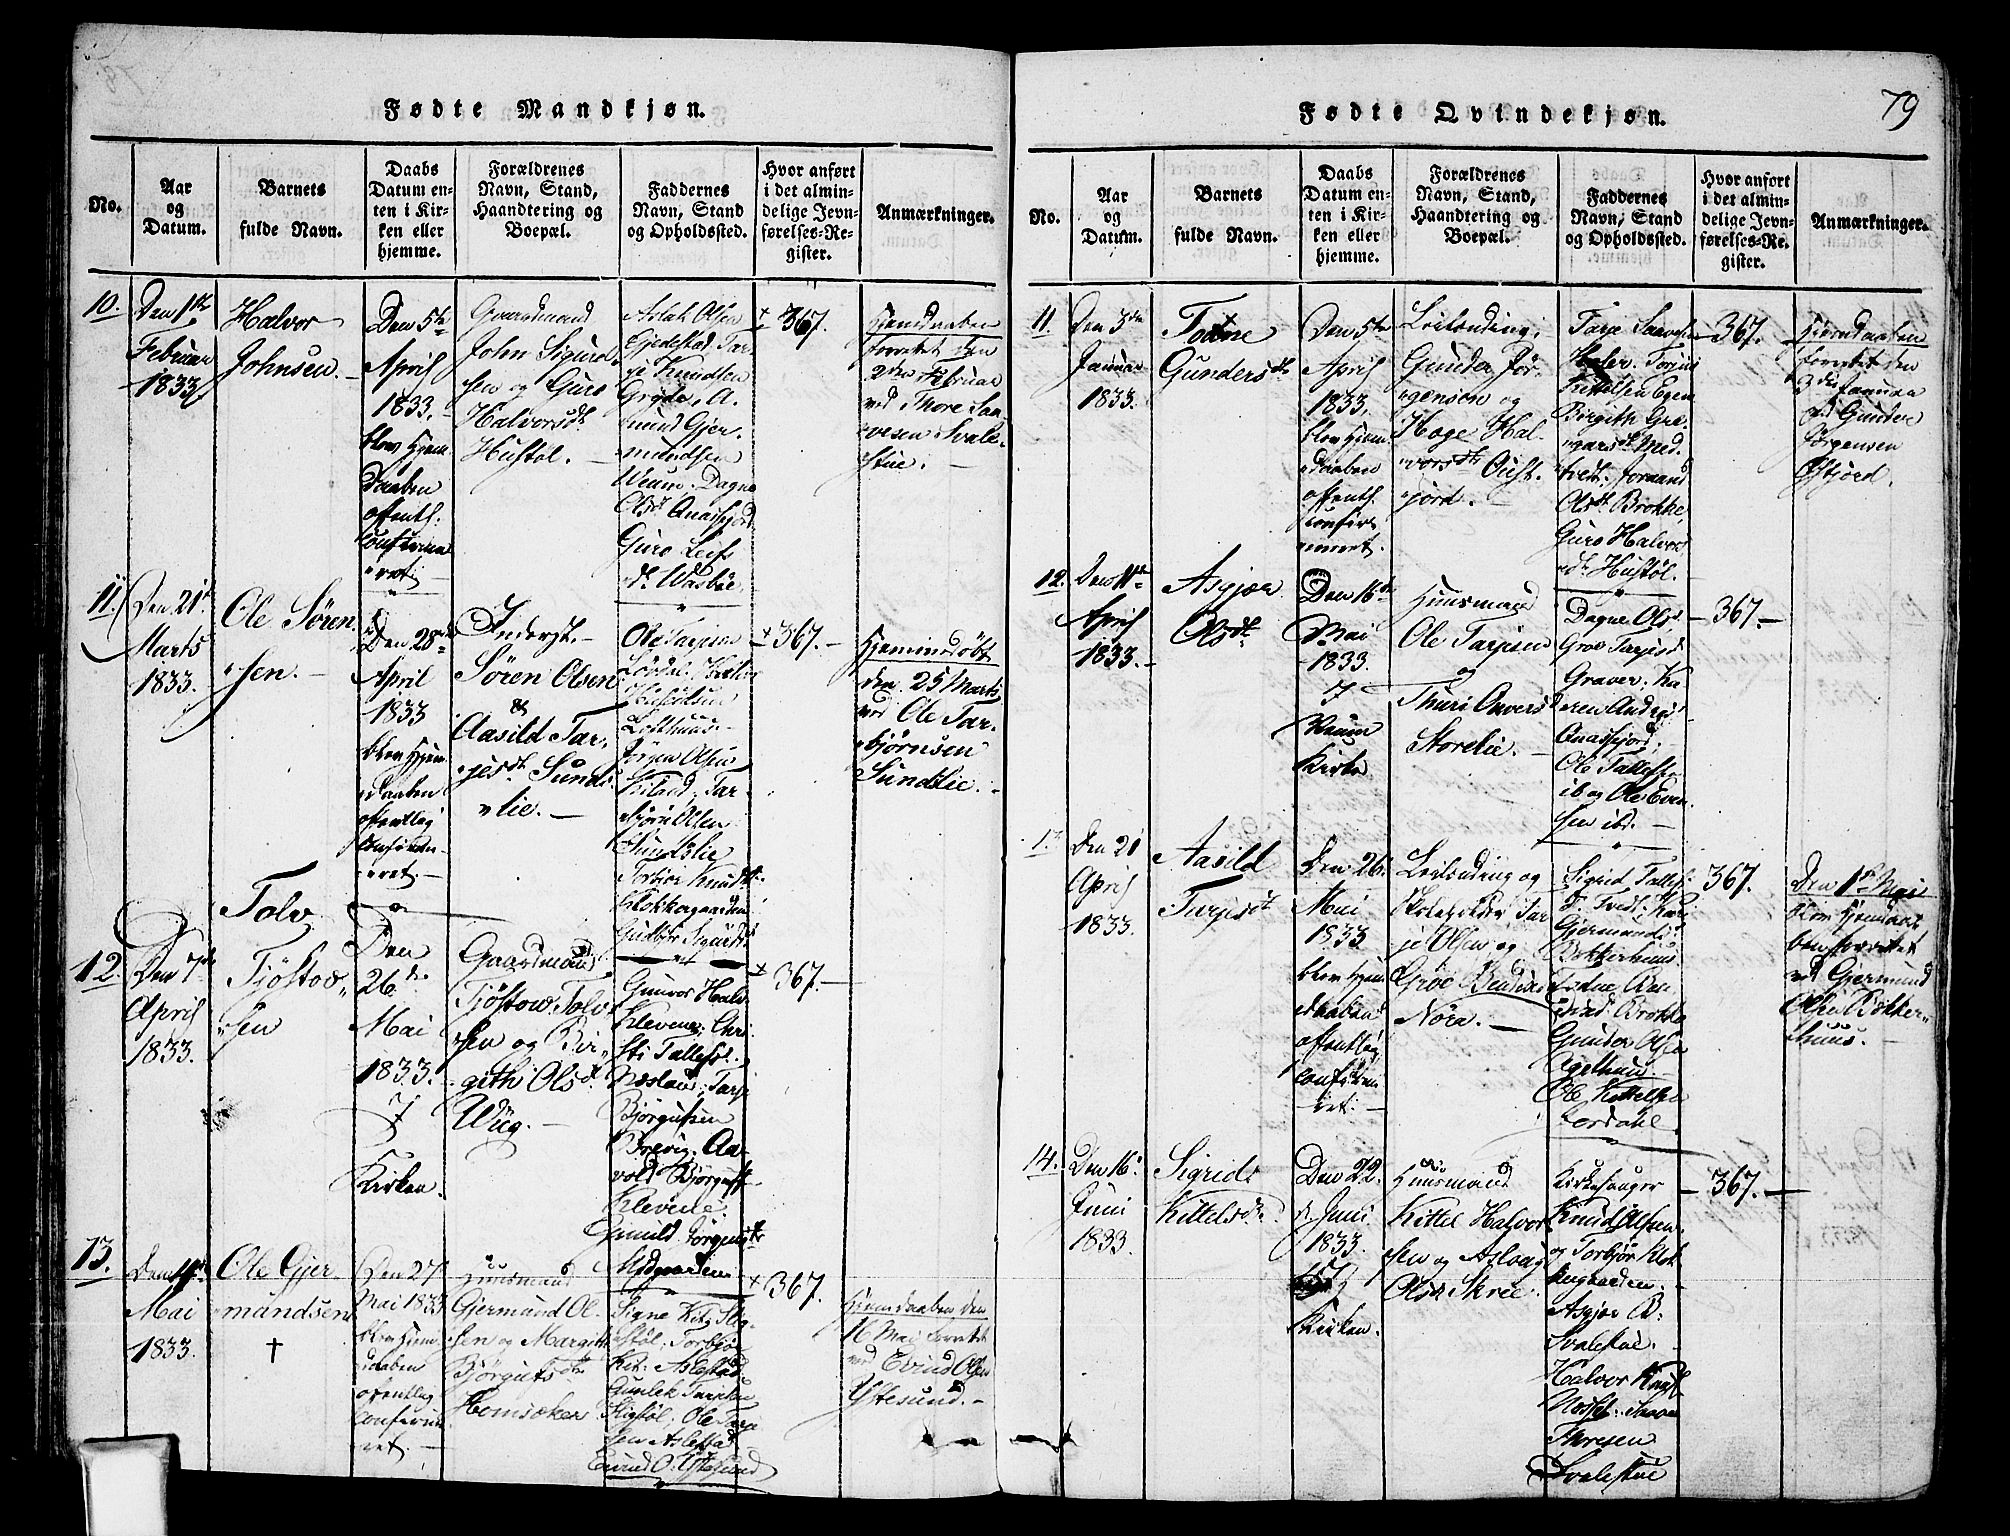 79
Fødte Mandkjøn.
No.
Aar
og
Datum.
Barnets
fulde Navn.
Daabs
Datum en-
ten i Kir-
ken eller
hjemme.
Forældrenes
Navn, Stand,
Haandtering og
Boepæl.
Faddernes
Navn, Stand
og Opholdssted.
Hvor anført
i det almin-
delige Jevn-
førelses-Re-
gister.
Anmærkninger.
10.
Den 1ste
Februar
1833.
Halvor
Johnsen.
Den 5te
April
1833.
blev hjem-
daaben
offentl.
confirme-
ret.
Gaardmand
John Sigurd-
sen og Guro
Halvorsdt.
Hustøl.
Aslak Olsen
Gjedestad, Tar-
je Knudsen
Grøde, A-
mund Gjer-
mundsen
Veum. Dagne
Olsdt. Anassjord
Guro Leifs
dt. Wasbøe.
367.
Hjemdaaben
forrettet den
2den Februar
ved Thore Saa-
vesen Svale-
stue.
11.
Den 21de
Marts
1833.
Ole Søren-
sen.
Den 28de
April
1833
blev hjem-
daaben
offentlig
confirm-
eret.
Inderst.
Søren Olsen
&
Aasild Tar-
jesdt. Sunds-
lie.
Ole Tarjesen
Lofthuus.
Jørgen Olsen
Tar-
bjørn Olsen
Sundslie
Torbior Knudsdt.
Klokkergaarden
Gudbør Sigurdsdt.
367.
Hjemmedøbt
den 25 Marts
ved Ole Tar-
bjørnsen
Sundslie.
12.
Den 7de
April
1833.
Tolv
Tjøstov-
sen
Den
26de
Mai
1833.
i
Kirken.
Gaardmand
Tjøstov Tolv-
sen og Bir-
gith Olsdt.
Wiig.
Gunvor Halv.
Klevene; Chri-
sti Tallefsdt.
Næsland; Tarje
Bjørgufsen
Brevig. Aa-
vold Bjørgufs.
Klevene.
Gunild Jørgensdt.
Midgaarden
367.
13.
Den 14de
Mai
1833.
Ole Gjer-
mundsen
†
Den 27
Mai 1833
blev hjem-
daaben
offentlig
confirme-
ret.
Huusmand
Gjermund Ol-
sen og Margith
Bjørgufsdt.
Homsaker
Signe Kit: Sig-
støl; Torbjø
Kit: Aslestad
Gunlek Tarjesen
Sigstøl; Ole Tarje-
sen Aslestad
Eivind O: Ystesund
367.
Hjemdaaben den
16 Mai forrettet
ved Evind Olsen
Ystesund.
Fødte Qvindekjøn.
No.
Aar
og
Datum.
Barnets
fulde Navn.
Daabs
Datum en-
ten i Kir-
ken eller
hjemme.
Forældrenes
Navn, Stand,
Haandtering og
Boepæl.
Faddernes
Navn, Stand
og Opholdssted.
Hvor anført
i det almin-
delige Jevn-
førelses-Re-
gister.
Anmærkninger.
11.
Den 3die
Januar
1833.
Tone
Gundersdt.
Den 5te
April
1833,
blev hjem-
daaben
offentl.
confir-
meret.
Leilænding
Gunder Jør-
gensen og
Hæge Hal-
vorsdt. Øist-
jord.
Tarje Saavesen
Torjus
Kittelsen Egen
Birgith Gre-
garsdt. Med-
tvedt.
Olsdt. Brokke,
Guro Halvors
dt. Hustøl.
367.
Hjemdaaben
forrettet den
3die Januar
ved Gunder
Jørgensen
Østjord.
12.
Den 11te
April
1833.
Asgjær
Olsdt.
Den 16de
Mai
1833.
i
Veum
Kirke
Huusmand
Ole Tarjesen
og
Thuri Onversdt.
Storelie.
Dagne Olsd.
Groe Tarjesd.
Graver. Ka-
ren Andrs.
Anassjord;
Ole Tallefsen
ib og Ole Even-
sen ibd.
367.
13.
Den 21
April
1833.
Aasild
Tarjesdt.
Den 26.
Mai
1833
blev hjem-
daaben
offentlig
confirm-
eret.
Leilænding og
Tar-
je Olsen og
Groe Bendixd.
Nora.
Sigrid Tallefs.
Tvedt; Kari
Gjermunds.
Bøkkerhuus.
Brokke
Gunder Olsen
Agethuus.
Ole Kittelsen
Lordahl.
367.
Den 1ste Mai
blev hjemdaa-
ben forrettet
ved Gjermund
Olsen Bøkker-
huus.
14.
Den 16.
Juni
1833.
Sigrid
Kittelsdt.
Den 22.
Juni
1833.
i
Kirken.
Huusmand
Kittel Halvor-
sen og Aslaug
Olsdt. Skree.
Kirkesanger
Knud Olsen
og Torbjør Klok-
kergaarden.
Asgjær O:
Svalestue.
Halvor Knuds.
Saave
Thoresen
Svalestue
367.